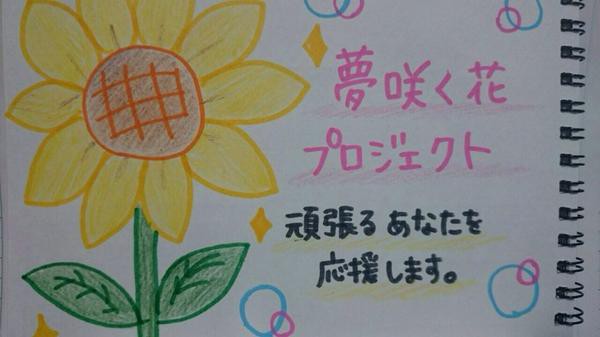 夢咲く花
プロジェクト
頑張るあなたを
応援します。